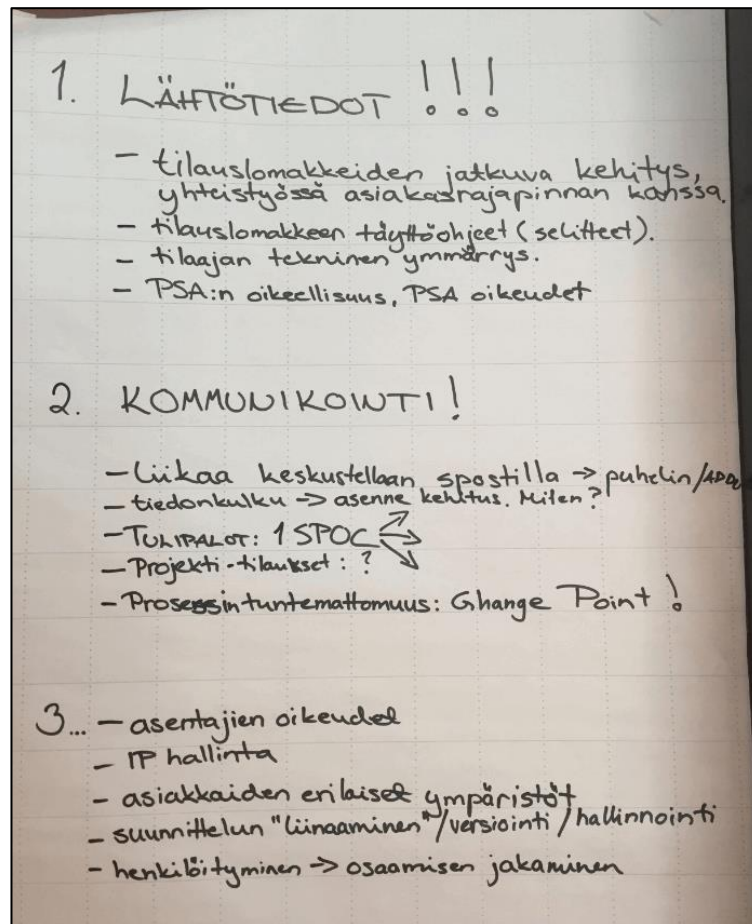 1. LÄHTÖTIEDOT !!!
- tilauslomakkeiden jatkuva kehitys,
yhteistyössä asiakasrajapinnan kanssa.
- tilauslomakkeen täyttöohjeet (selitteet).
- tilaajan tekninen ymmärrys.
- PSA:n oikeellisuus, PSA oikeudet
2. KOMMUNIKOINTI!
- Liikaa keskustellaan spostilla → puhelin/
- tiedonkulku → asenne kehitus. Miten?
- TULIPALOT: 1 SPOC
- Projekti-tilaukset: ?
- Prosessin tuntemattomuus: Change Point!
3... - asentajien oikeudet
- IP hallinta
- asiakkaiden erilaiset ympäristöt
- suunnittelun "liinaaminen"/versiointi/hallinnointi
- henkilöityminen → osaamisen jakaminen